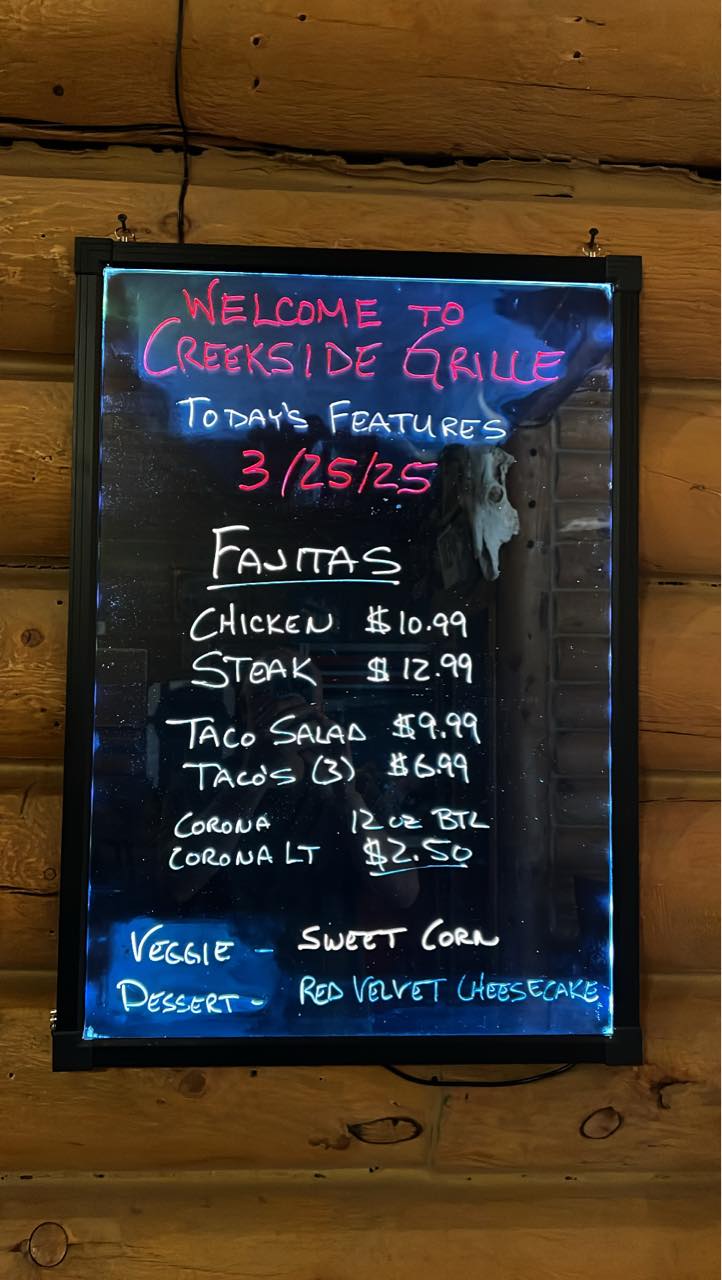 WELCOME TO
CREEKSIDE GRILLE
TODAY'S FEATURES
3/25/25
FAJITAS
CHICKEN $10.99
STEAK $12.99
TACO SALAD $9.99
TACO'S (3) $6.99
CORONA 12 OZ BTL
CORONA LT $2.50
VEGGIE - SWEET CORN
DESSERT - RED VELVET CHEESECAKE